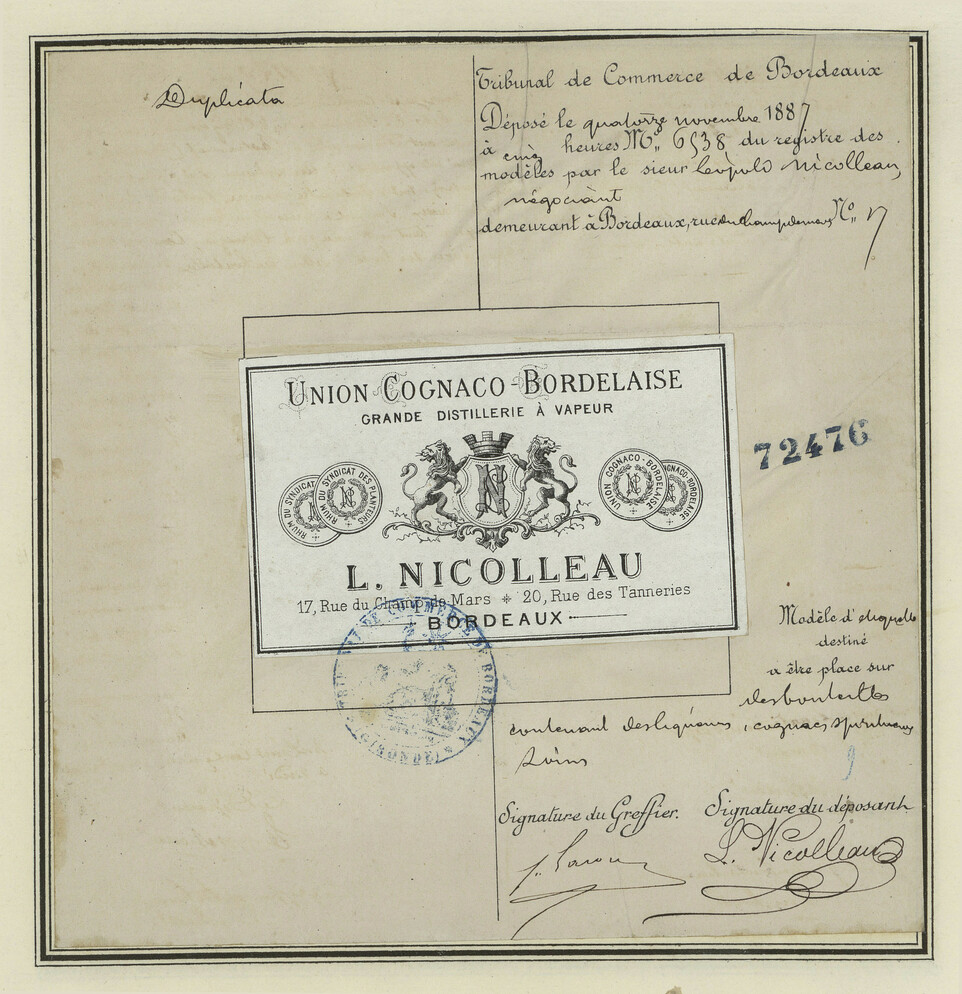 Duplicata
Tribunal de Commerce de Bordeaux
Déposé le quatorze novembre 1887
à cinq heures No. 6538 du registre des
modèles par le sieur Léopold Nicolleau,
négociant
demeurant à Bordeaux, rue du Champ de mars, No. 17
UNION COGNACO-BORDELAISE
GRANDE DISTILLERIE À VAPEUR
RHUM DU SYNDICAT
RHUM DU SYNDICAT DES PLANTEURS
N
UNION COGNACO-BORDELAISE
GNACO-BORDELAISE
72476
L. NICOLLEAU
17, Rue du Champ de Mars 20, Rue des Tanneries
BORDEAUX
TRIBUNAL DE COMMERCE DE BORDEAUX
(GIRONDE)
Modèle d'étiquette
destiné
a être place sur
des bouteilles
contenant des liqueurs, cognacs, spiritueux
& vins
Signature du Greffier. Signature du déposant.
L. Nicolleau